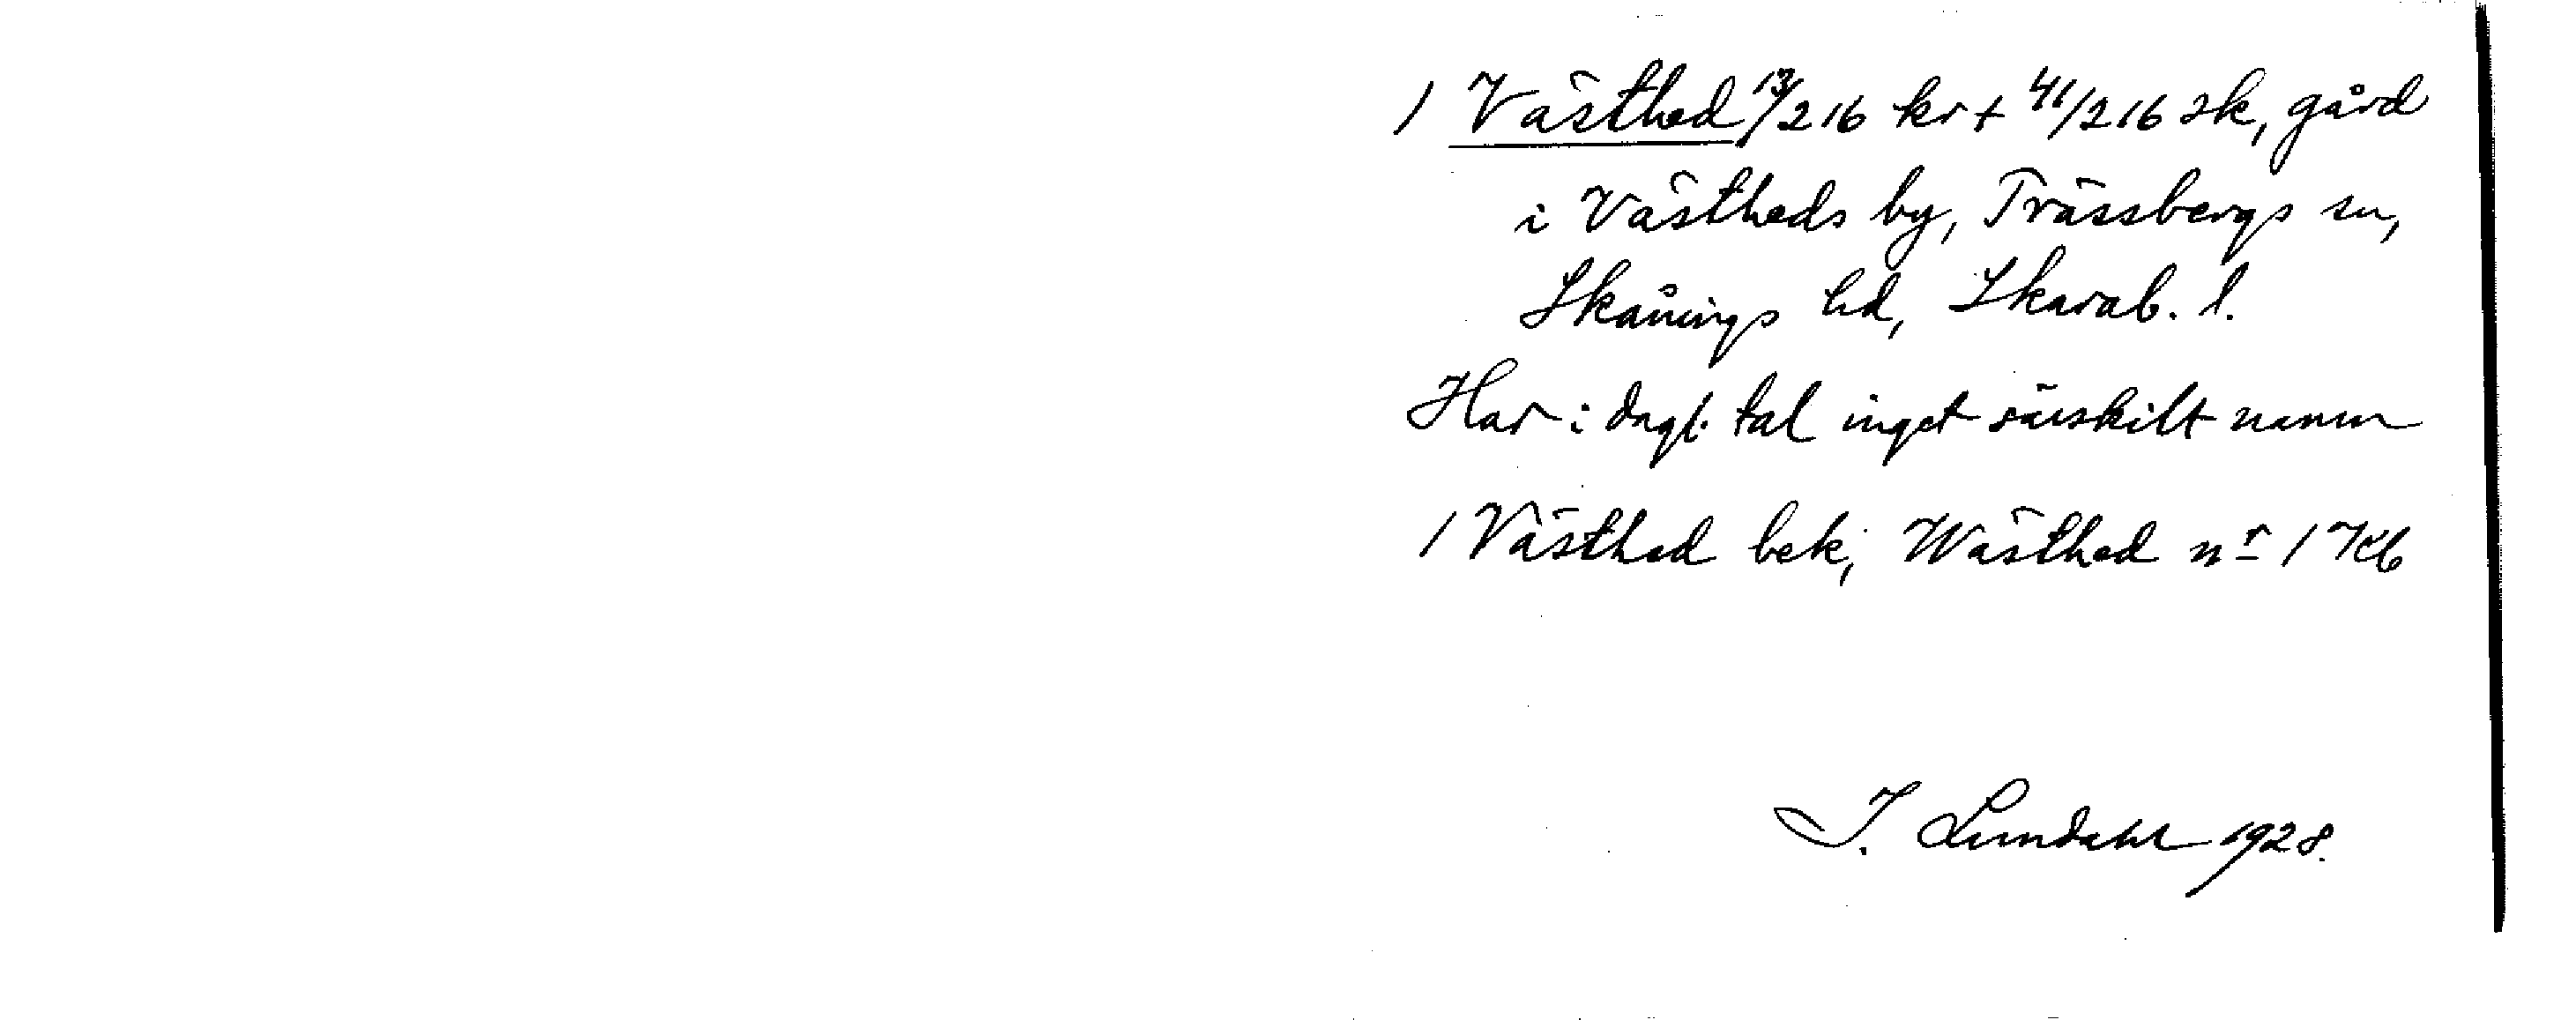 1 Västhed 13/216 kr + 41/216 sk, gård
i Västheds by, Trässbergs sn,
Skånings hd, Skarab. l.
Har i dagl. tal inget särskilt namn
1 Västhed bek; Wästhed nr 1 Kb
I. Lundahl 1928.